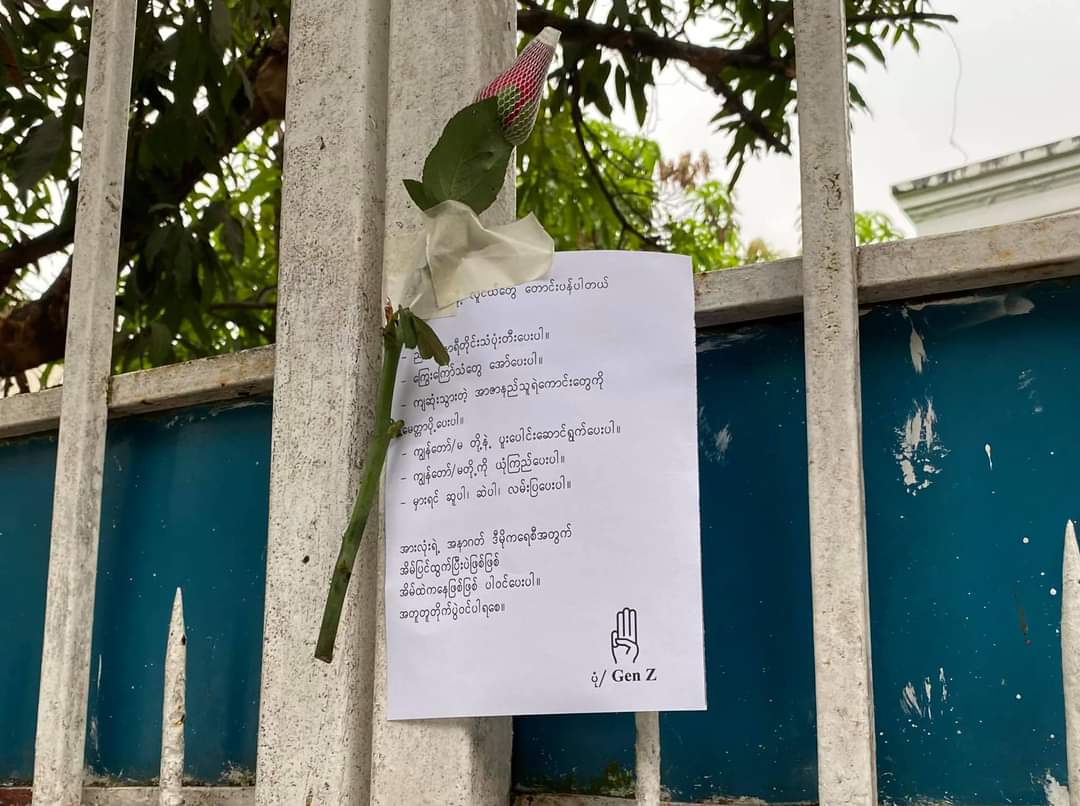 လူငယ်တွေ တောင်းပန်ပါတယ်
နာရီတိုင်းသံပုံးတီးပေးပါ။
- ကြွေးကြော်သံတွေ အော်ပေးပါ။
- ကျဆုံးသွားတဲ့ အာဇာနည်သူရဲကောင်းတွေကို
မေတ္တာပို့ပေးပါ။
- ကျွန်တော်/မ တို့နဲ့ ပူးပေါင်းဆောင်ရွက်ပေးပါ။
- ကျွန်တော်/မတို့ကို ယုံကြည်ပေးပါ။
- မှားရင် ဆူပါ၊ ဆဲပါ၊ လမ်းပြပေးပါ။
အားလုံးရဲ့ အနာဂတ် ဒီမိုကရေစီအတွက်
အိမ်ပြင်ထွက်ပြီးပဲဖြစ်ဖြစ်
အိမ်ထဲကနေဖြစ်ဖြစ် ပါဝင်ပေးပါ။
အတူတူတိုက်ပွဲဝင်ပါရစေ။
ပုံ/ Gen Z